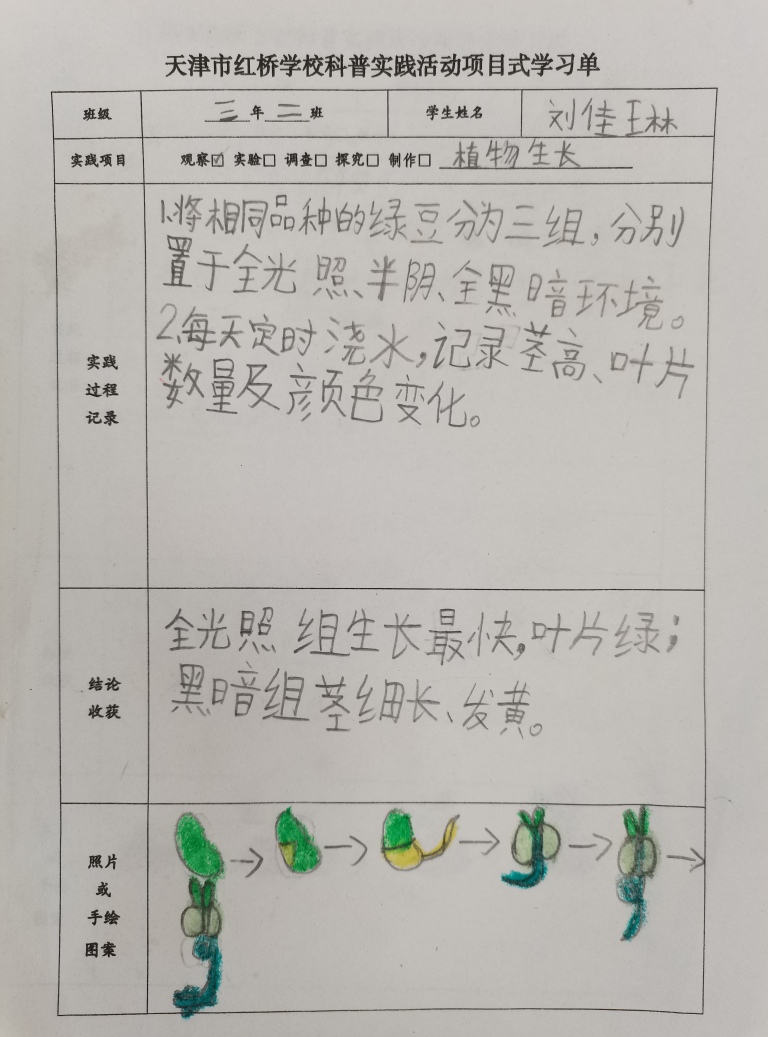 天津市红桥学校科普实践活动项目式学习单
班级 三年二班 学生姓名 刘佳玨林
实践项目 观察☑ 实验□ 调查□ 探究□ 制作□ 植物生长
实践
过程
记录
1.将相同品种的绿豆分为三组,分别
置于全光照、半阴、全黑暗环境。
2.每天定时浇水,记录茎高、叶片
数量及颜色变化。
结论
收获
全光照组生长最快,叶片绿;
黑暗组茎细长、发黄。
照片
或
手绘
图案